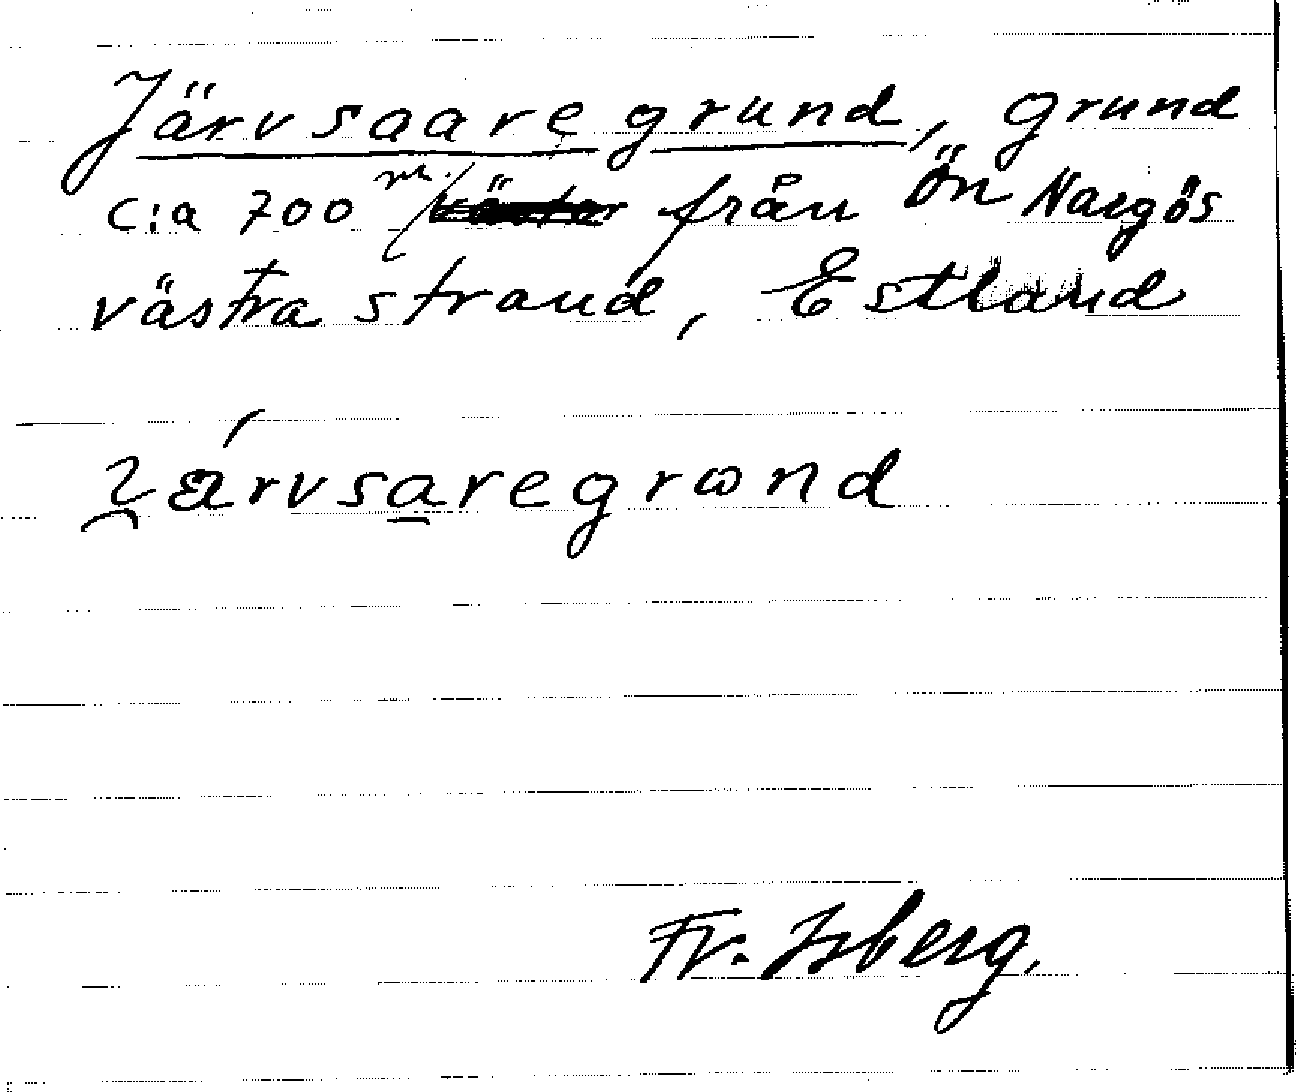 Järvsaaregrund, grund
c:a 700 m. från ön Nargös
västra strand, Estland
Fr. Isberg.